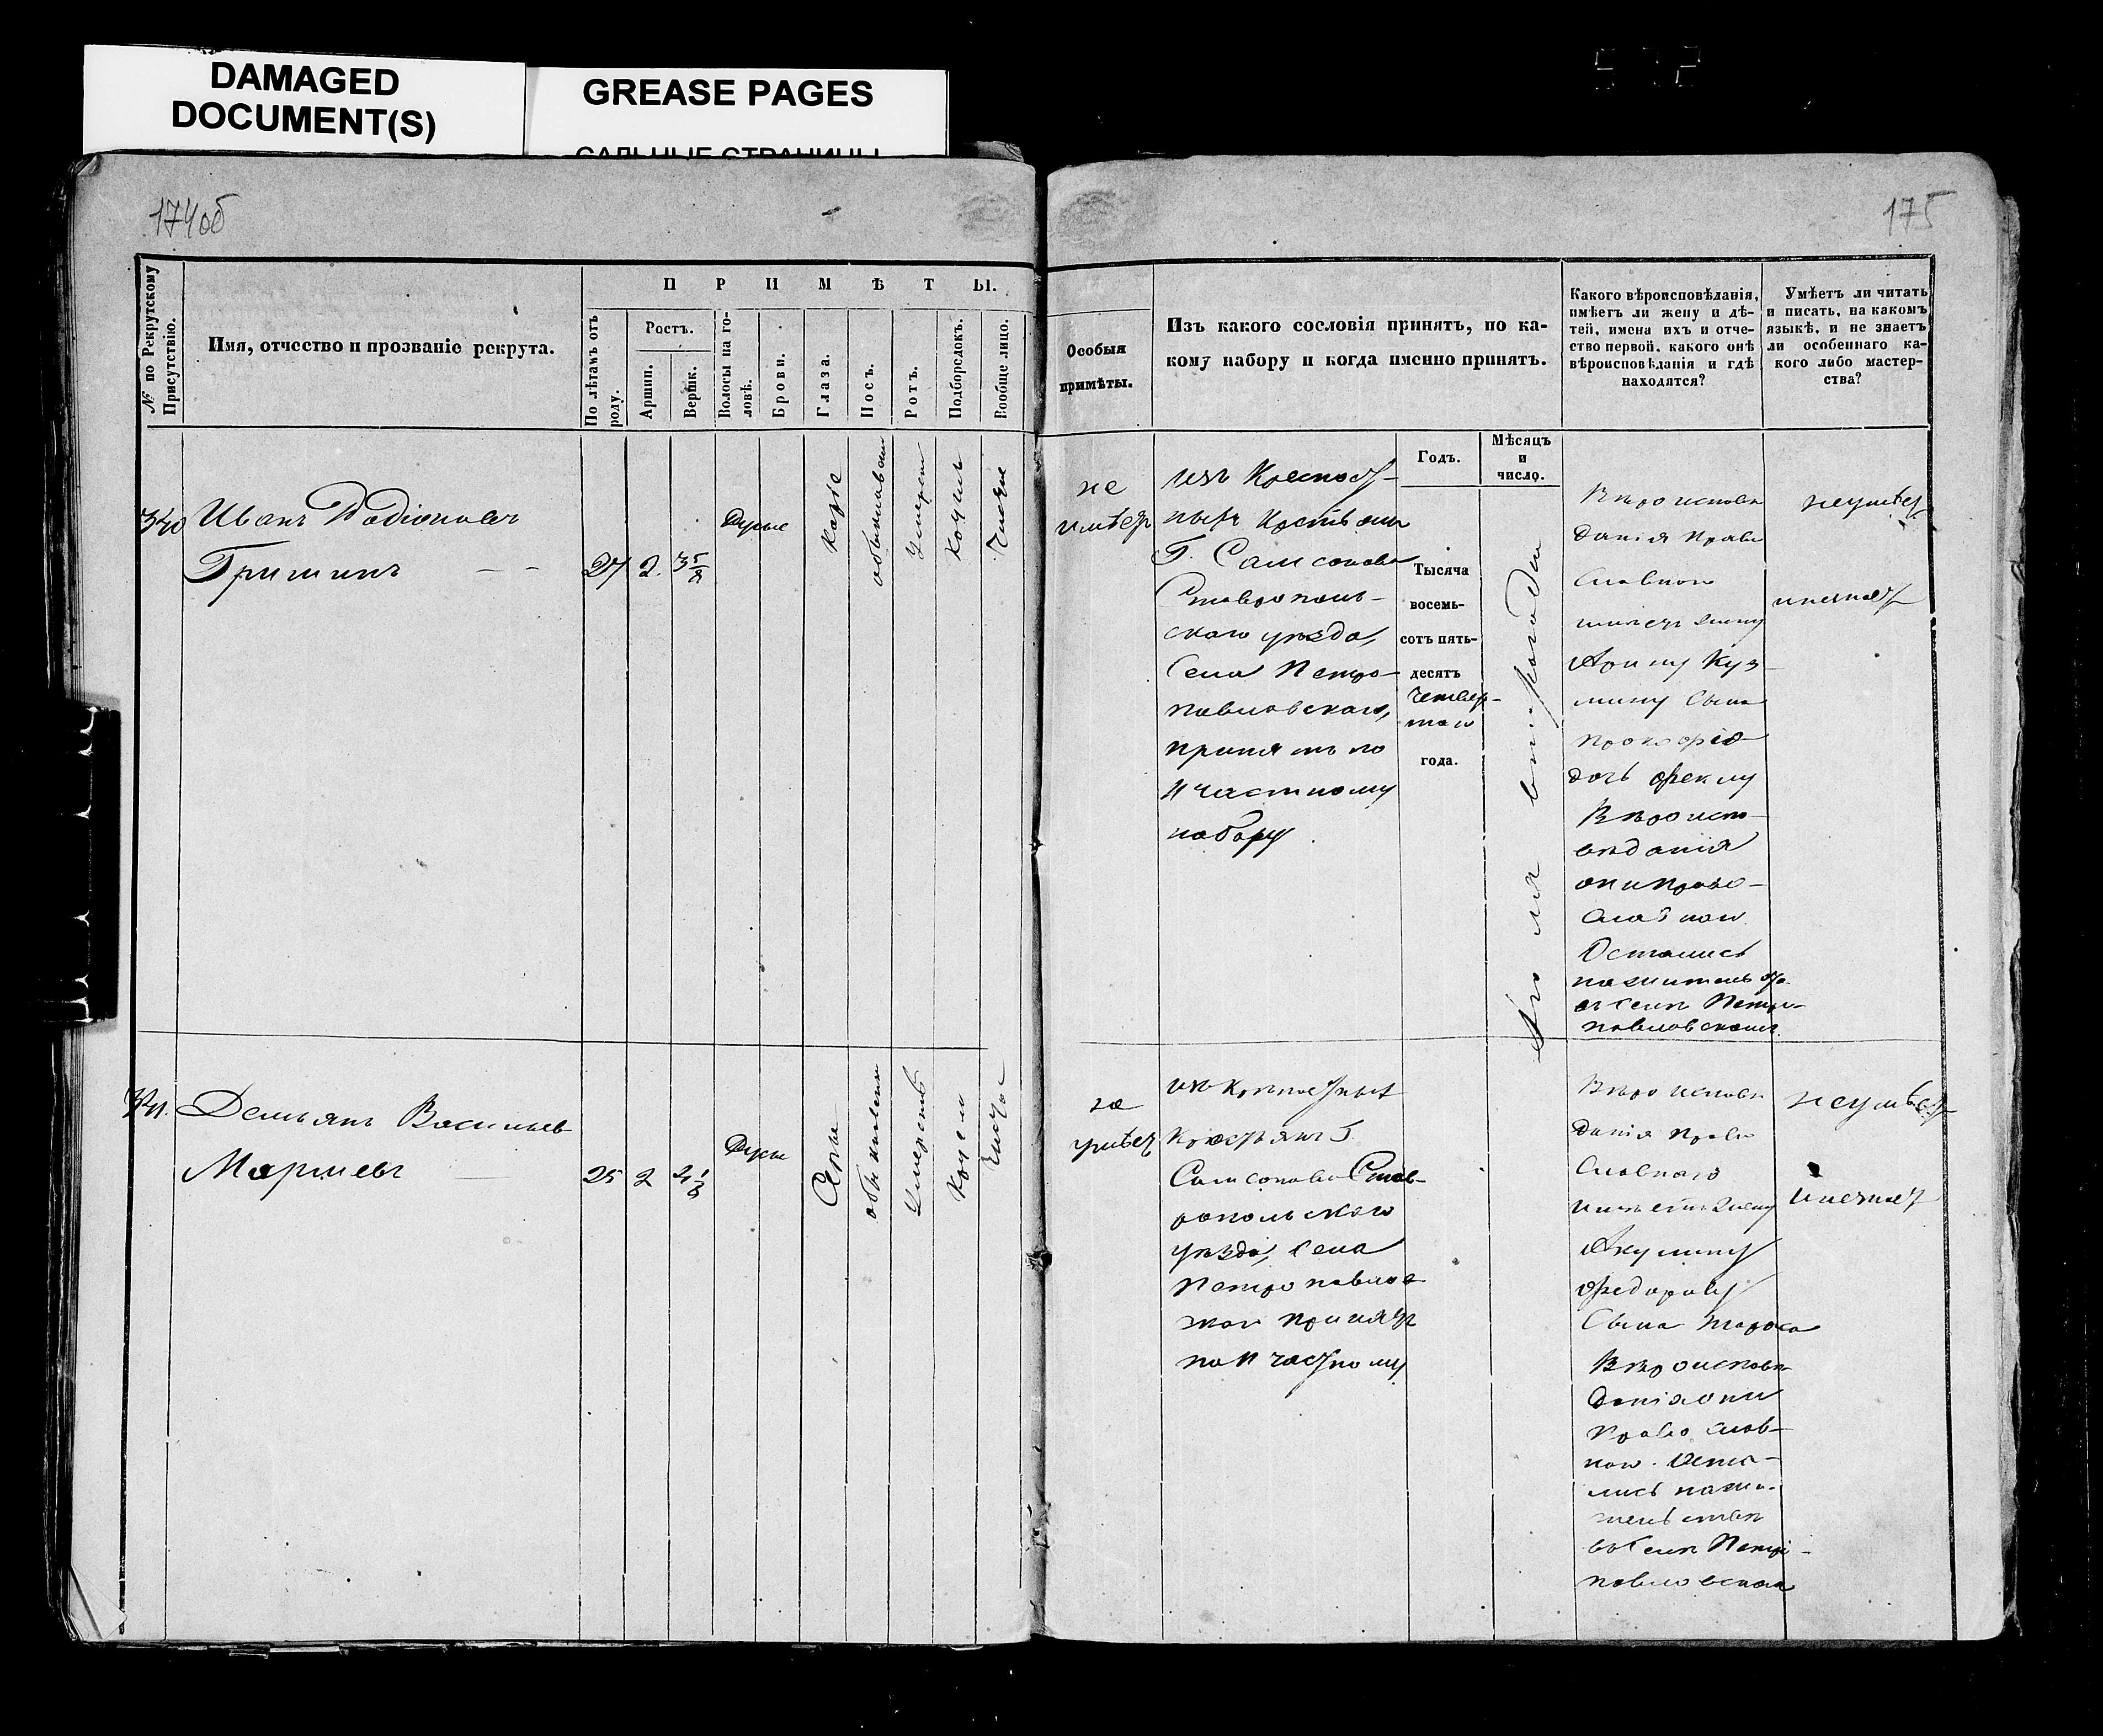 DAMAGED
DOCUMENT(S)
GREASE PAGES
САЛЬНЫЕ СТРАНИЦЫ
174об
175
№ по Рекрутскому
Присутствію.
Имя, отчество и прозваніе рекрута.
ПРИМѢТЫ.
По лѣтамъ отъ
роду.
Ростъ.
Аршин.
Вершк.
Волосы на го-
ловѣ.
Брови.
Глаза.
Носъ.
Ротъ.
Подбородокъ.
Вообще лицо.
Особыя
примѣты.
Изъ какого сословія принятъ, по ка-
кому набору и когда именно принятъ.
Какого вѣроисповѣданія,
имѣетъ ли жену и дѣ-
тей, имена ихъ и отче-
ство первой, какого онѣ
вѣроисповѣданія и гдѣ
находятся?
Умѣетъ ли читать
и писать, на какомъ
языкѣ, и не знаетъ
ли особеннаго ка-
кого либо мастер-
ства?
Годъ.
Мѣсяцъ
и
число.
340
Иванъ Родіоновъ
Гришинъ
27 2 3 5/8
Русые
Каріе
обыкновен
Умерен
Чистое
не
имѣет
изъ Крепост-
ныхъ Крестьянъ
Г. Самсонова
Ставрополь-
скаго уѣзда,
Села Петро-
павловскаго,
принятъ по
11 частному
набору
Тысяча
восемь-
сотъ пять-
десятъ
четвер-
таго
года.
Вѣроисповѣ
данія Право
славнаго
имѣетъ жену
Арину Куз-
мину Сына
Прокофія
дочь Феклу
Вѣроиспо-
вѣданія
они Право-
славнаго
Остались
на жительство
въ Селѣ Петро-
павловскомъ
неумѣет
и незнает
341.
Демьянъ Васильев
25 2 4 1/8
Русые
Серые
обыкновенный
Умеренъ
Чистое
не
имѣет
изъ крѣпостных
Крестьянъ Г.
Самсонова Став-
ропольскаго
уѣзда, Села
Петропавлов
скаго принятъ
по 11 частному
Вѣроисповѣ
данія Право
славнаго
имѣетъ жену
Акулину
Федорову
Сына Тараса
Вѣроисповѣ
данія они
Православ-
наго. Оста-
лись на жи-
тельствѣ
въ Селѣ Петро-
павловском
неумѣет
и незнает